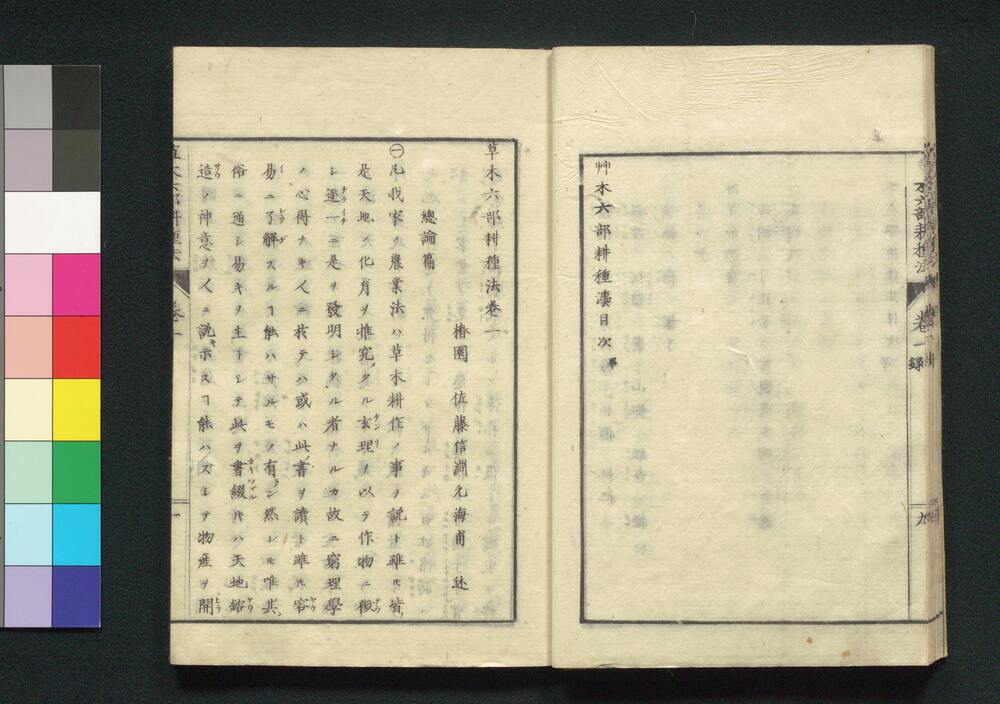 艸木六部耕種濃目次畢
草木六部耕種法卷一
椿園佐藤信淵元海甫 述
總論篇
㊀凡我家ノ農業法ハ草木耕作ノ事ヲ説ト雖𪜈皆
是天地ノ化育ヲ推究メタル玄理ヲ以テ作物ニ徴
シ逐一ニ是ヲ發明シタル者ナルカ故ニ窮理學
ノ心得ナキ人ニ於テハ或ハ此書ヲ讀ト雖𪜈容
易ニ了解スルヿ能ハサルモノ有ン然レ𪜈唯其
俗ニ通シ易キヲ主トシテ此ヲ書綴𪜈ハ天地鎔
造ノ神意ヲ人ニ説示スヿ能ハズシテ物産ヲ開